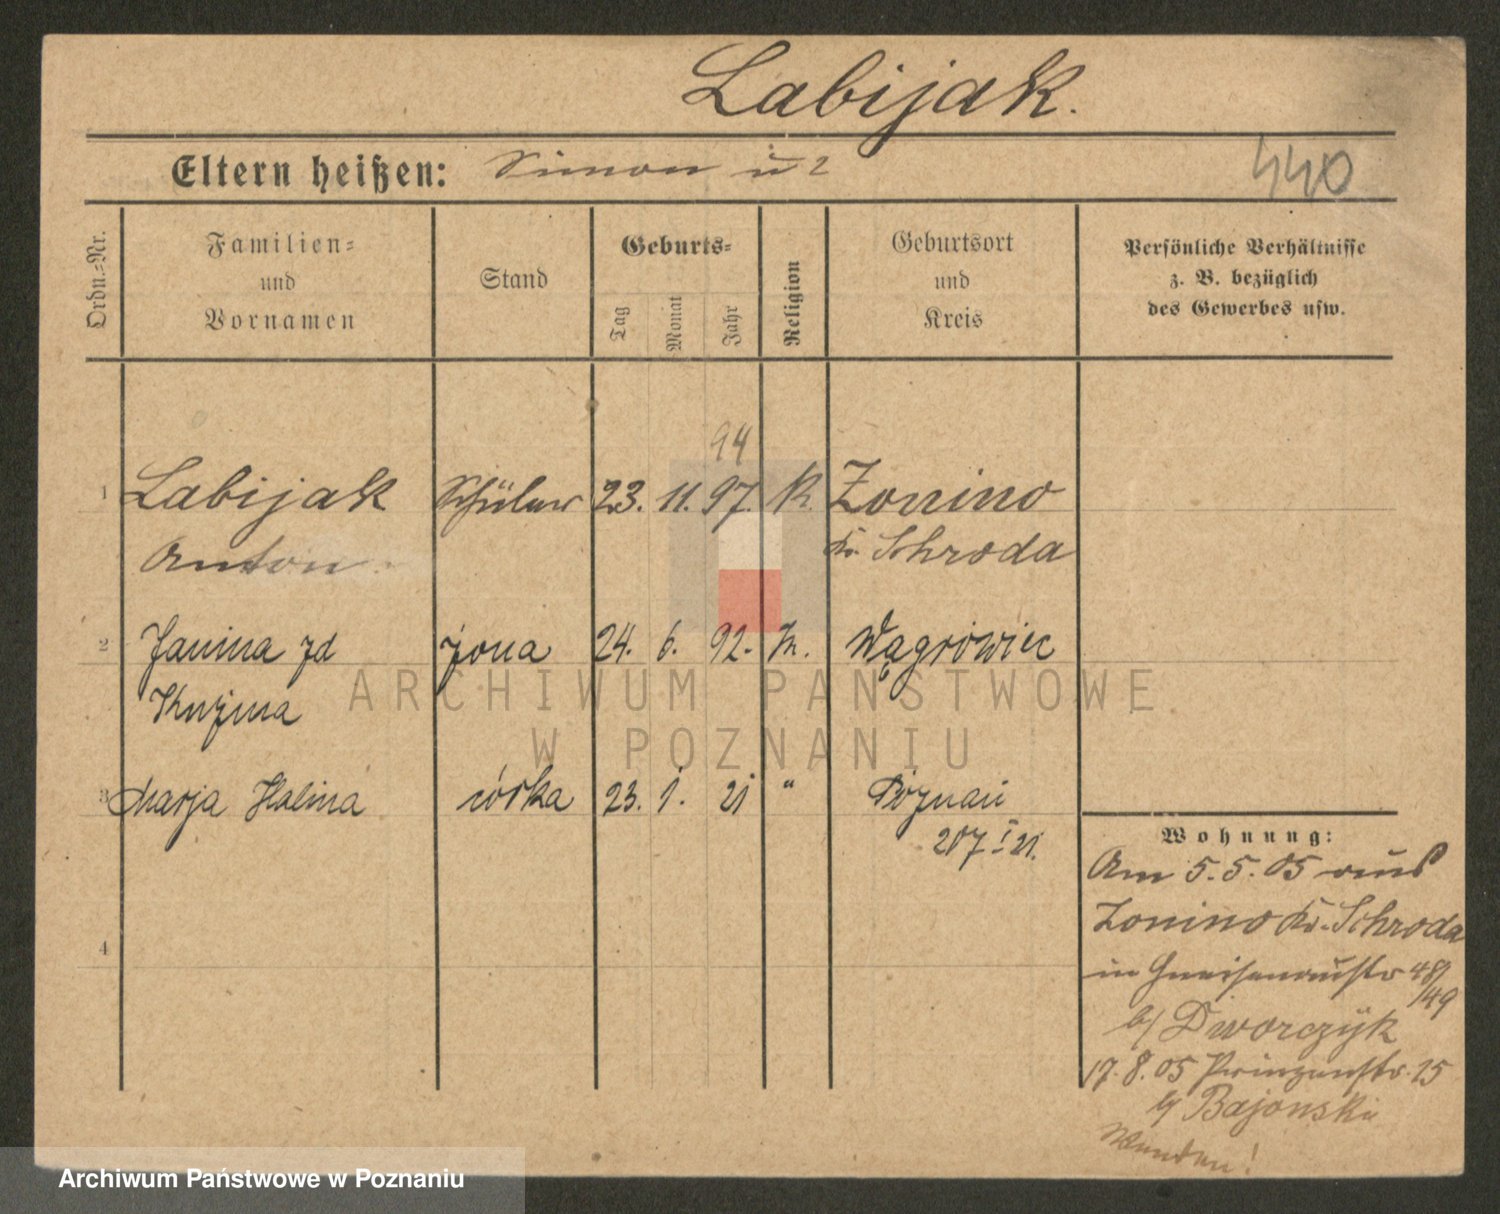 Labijak.
Eltern heißen: Simon u ?
440
Ordn.-Nr.
Familien-
und
Vornamen
Stand
Geburts-
Tag
Monat
Jahr
Religion
Geburtsort
und
Kreis
Persönliche Verhältnisse
z. B. bezüglich
des Gewerbes usw.
94
1 Labijak Schüler 23. 11. 97. K. Zonino
Anton Kr. Schroda
2 Janina zd żona 24. 6. 92. K. Wągrówiec
Kuźma
3 Marja Halina córka 23. 1. 21 " Poznań
207 I 21.
4
Wohnung:
Am 5.5.05 aus
Zonino Kr. Schroda
in Gneisenaustr 48/
/49
b/ Dworczyk
17.8.05 Prinzenstr. 15
b/ Bajonski
Wenden!
ARCHIWUM PAŃSTWOWE
W POZNANIU
Archiwum Państwowe w Poznaniu